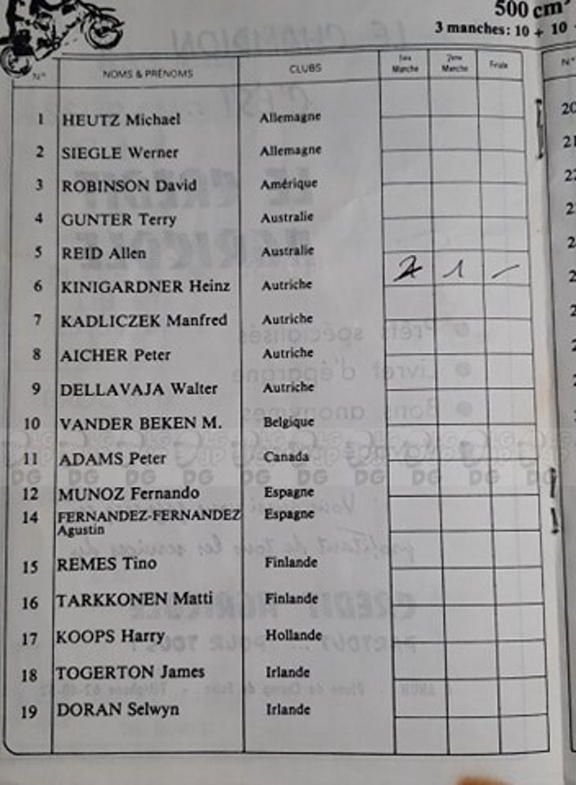 500 cm³
3 manches: 10 + 10
N° NOMS & PRÉNOMS CLUBS 1ère Manche 2ème Manche Finale N°
1 HEUTZ Michael Allemagne 20
2 SIEGLE Werner Allemagne 21
3 ROBINSON David Amérique
4 GUNTER Terry Australie
5 REID Allen Australie
6 KINIGARDNER Heinz Autriche 2 1 -
7 KADLICZEK Manfred Autriche
8 AICHER Peter Autriche
9 DELLAVAJA Walter Autriche
10 VANDER BEKEN M. Belgique
11 ADAMS Peter Canada
12 MUNOZ Fernando Espagne
14 FERNANDEZ-FERNANDEZ Espagne
Agustin
15 REMES Tino Finlande
16 TARKKONEN Matti Finlande
17 KOOPS Harry Hollande
18 TOGERTON James Irlande
19 DORAN Selwyn Irlande